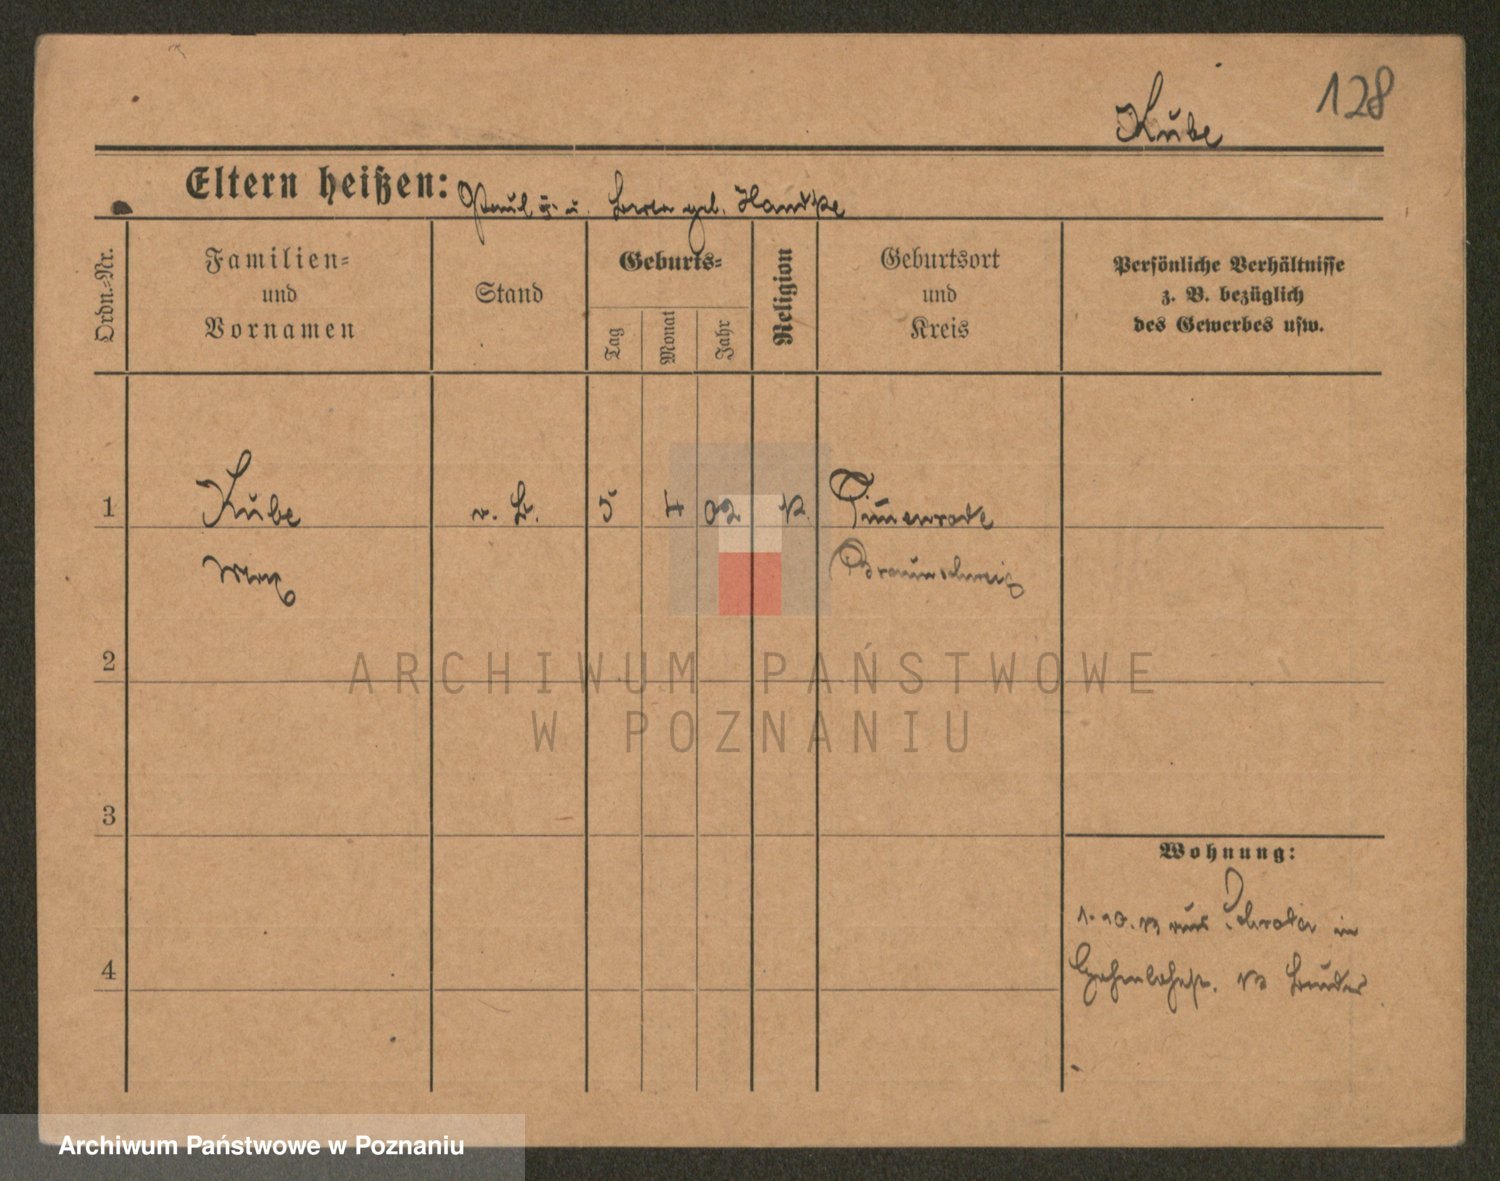 128
Kube
Eltern heißen: Paul u. geb. Handke
Ordn.-Nr.
Familien-
und
Vornamen
Stand
Geburts-
Tag
Monat
Jahr
Religion
Geburtsort
und
Kreis
Persönliche Verhältnisse
z. B. bezüglich
des Gewerbes usw.
1 Kube 5 4 02
Max Braunschweig
2
3
4
Wohnung:
1. 10. aus Schroda in
Bruder
ARCHIWUM PAŃSTWOWE
W POZNANIU
Archiwum Państwowe w Poznaniu